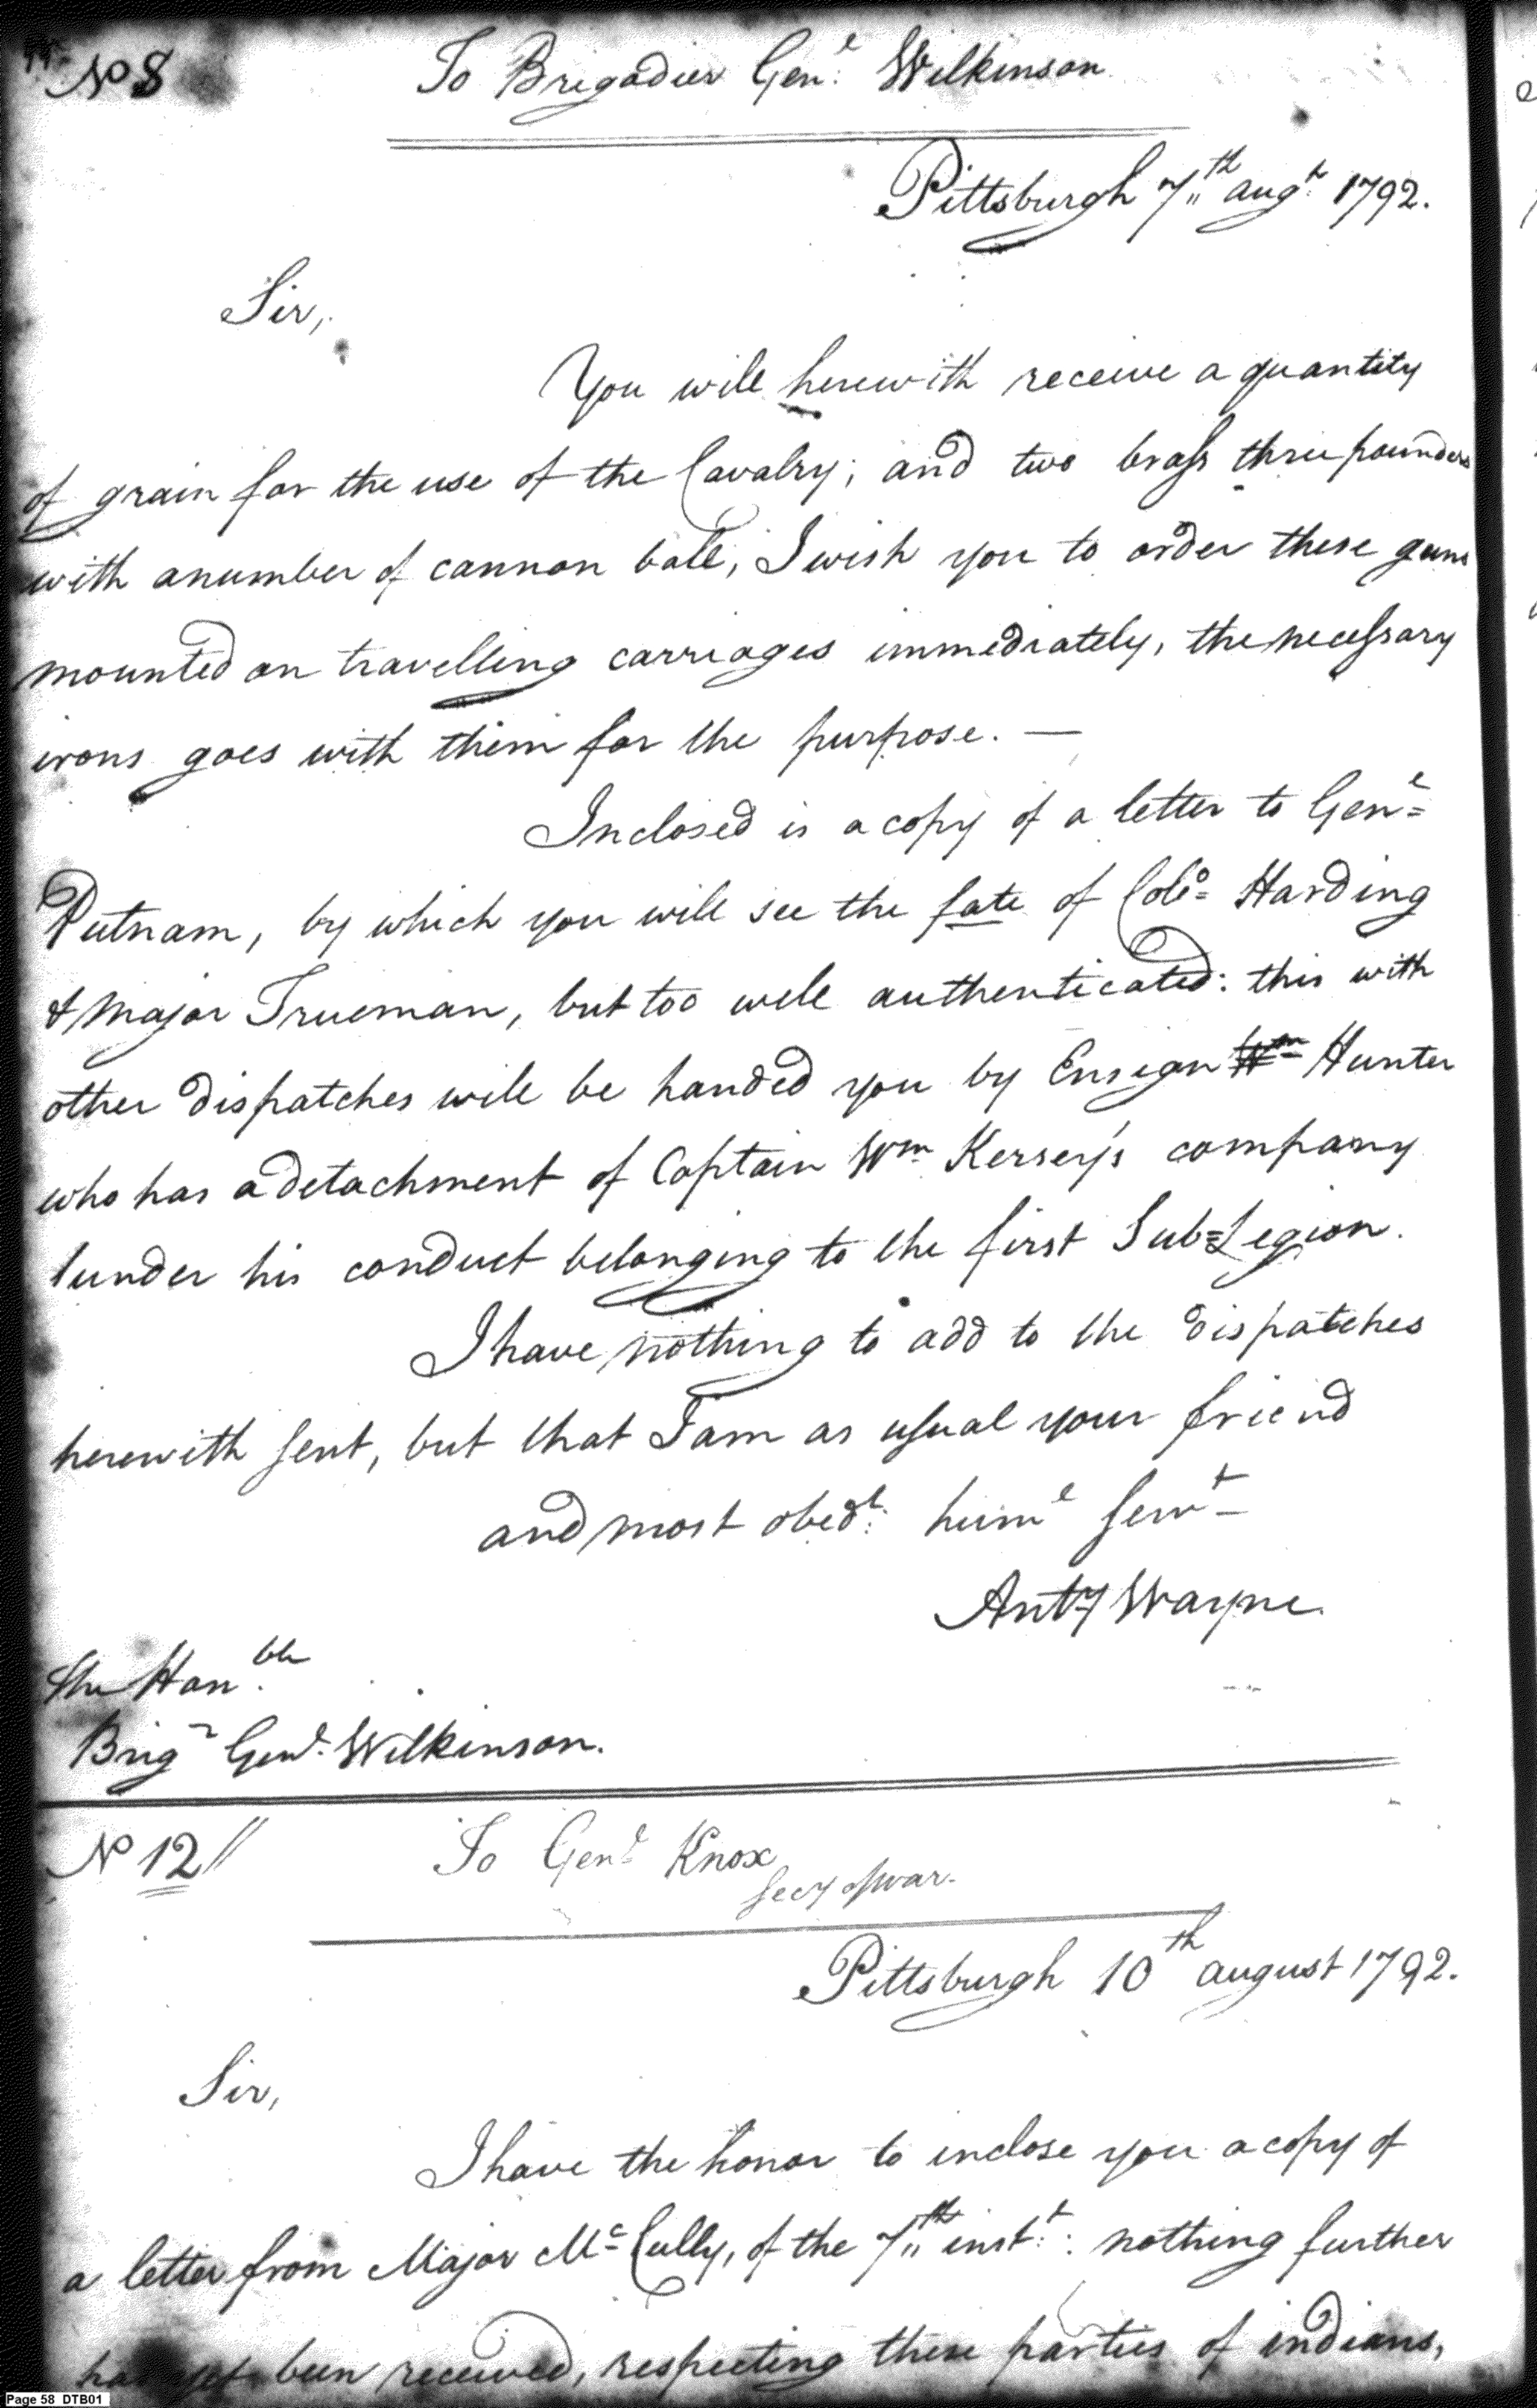 No 8
To Brigadier Genl. Wilkinson
Pittsburgh 7th augt. 1792.
Sir,
You will herewith receive a quantity
of grain for the use of the Cavalry; and two brass three pounders
with a number of cannon ball; I wish you to order these guns
mounted on travelling carriages immediately, the necessary
irons goes with them for the purpose. —
Inclosed is a copy of a letter to Genl=
Putnam, by which you will see the fate of Colo= Harding
& Major Trueman, but too well authenticated: this with
other dispatches will be handed you by Ensign Wm Hunter
who has a detachment of Captain Wm Kersey's company
under his conduct belonging to the first Sub=Legion.
I have nothing to add to the dispatches
herewith sent, but that I am as usual your friend
and most obedt. huml Servt
Anty Wayne.
The Honble.
Brigr Genl. Wilkinson.
No 12 //
To Genl Knox
Secy of war.
Pittsburgh 10th august 1792.
Sir,
I have the honor to inclose you a copy of
a letter from Major McCully, of the 7th inst.: nothing further
has yet been received, respecting these parties of indians,
Page 58 DTB01